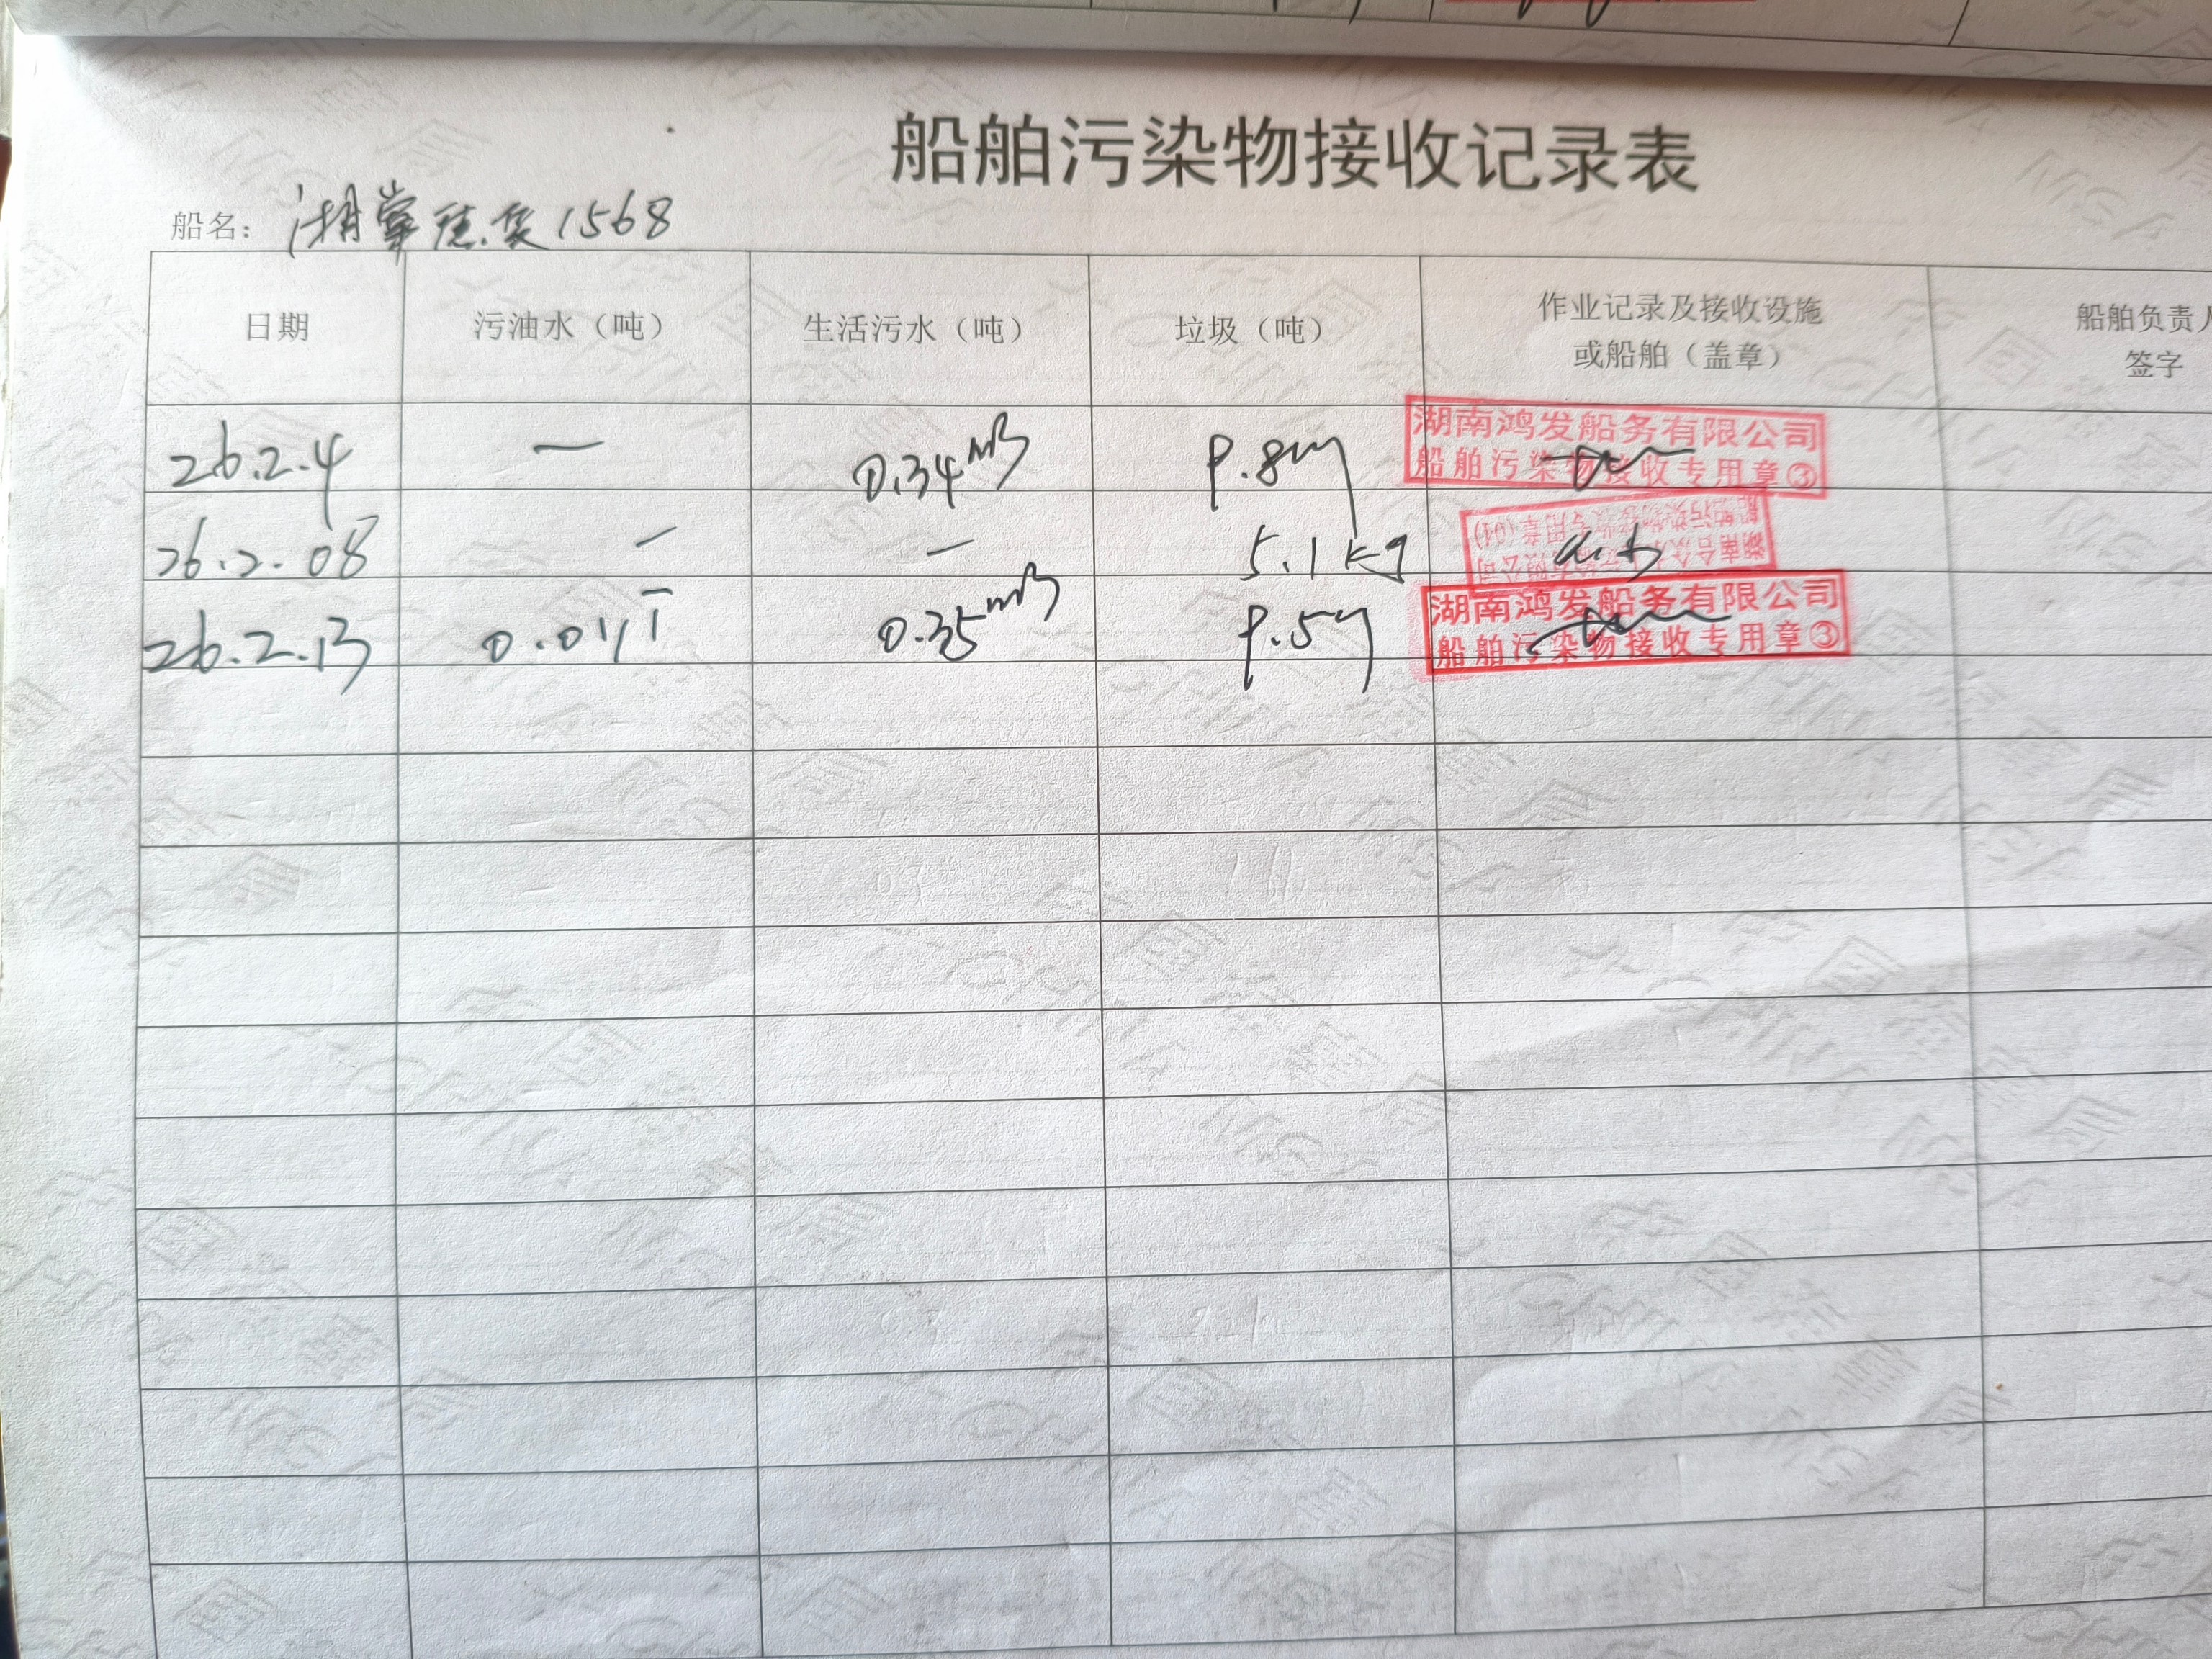 船舶污染物接收记录表
船名：湘常德货1568
日期 污油水（吨） 生活污水（吨） 垃圾（吨） 作业记录及接收设施或船舶（盖章） 船舶负责人签字
26.2.4 — 0.34m3 湖南鸿发船务有限公司
船舶污染物接收专用章③
26.2.08 — — 5.1kg
26.2.13 0.35m3 湖南鸿发船务有限公司
船舶污染物接收专用章③